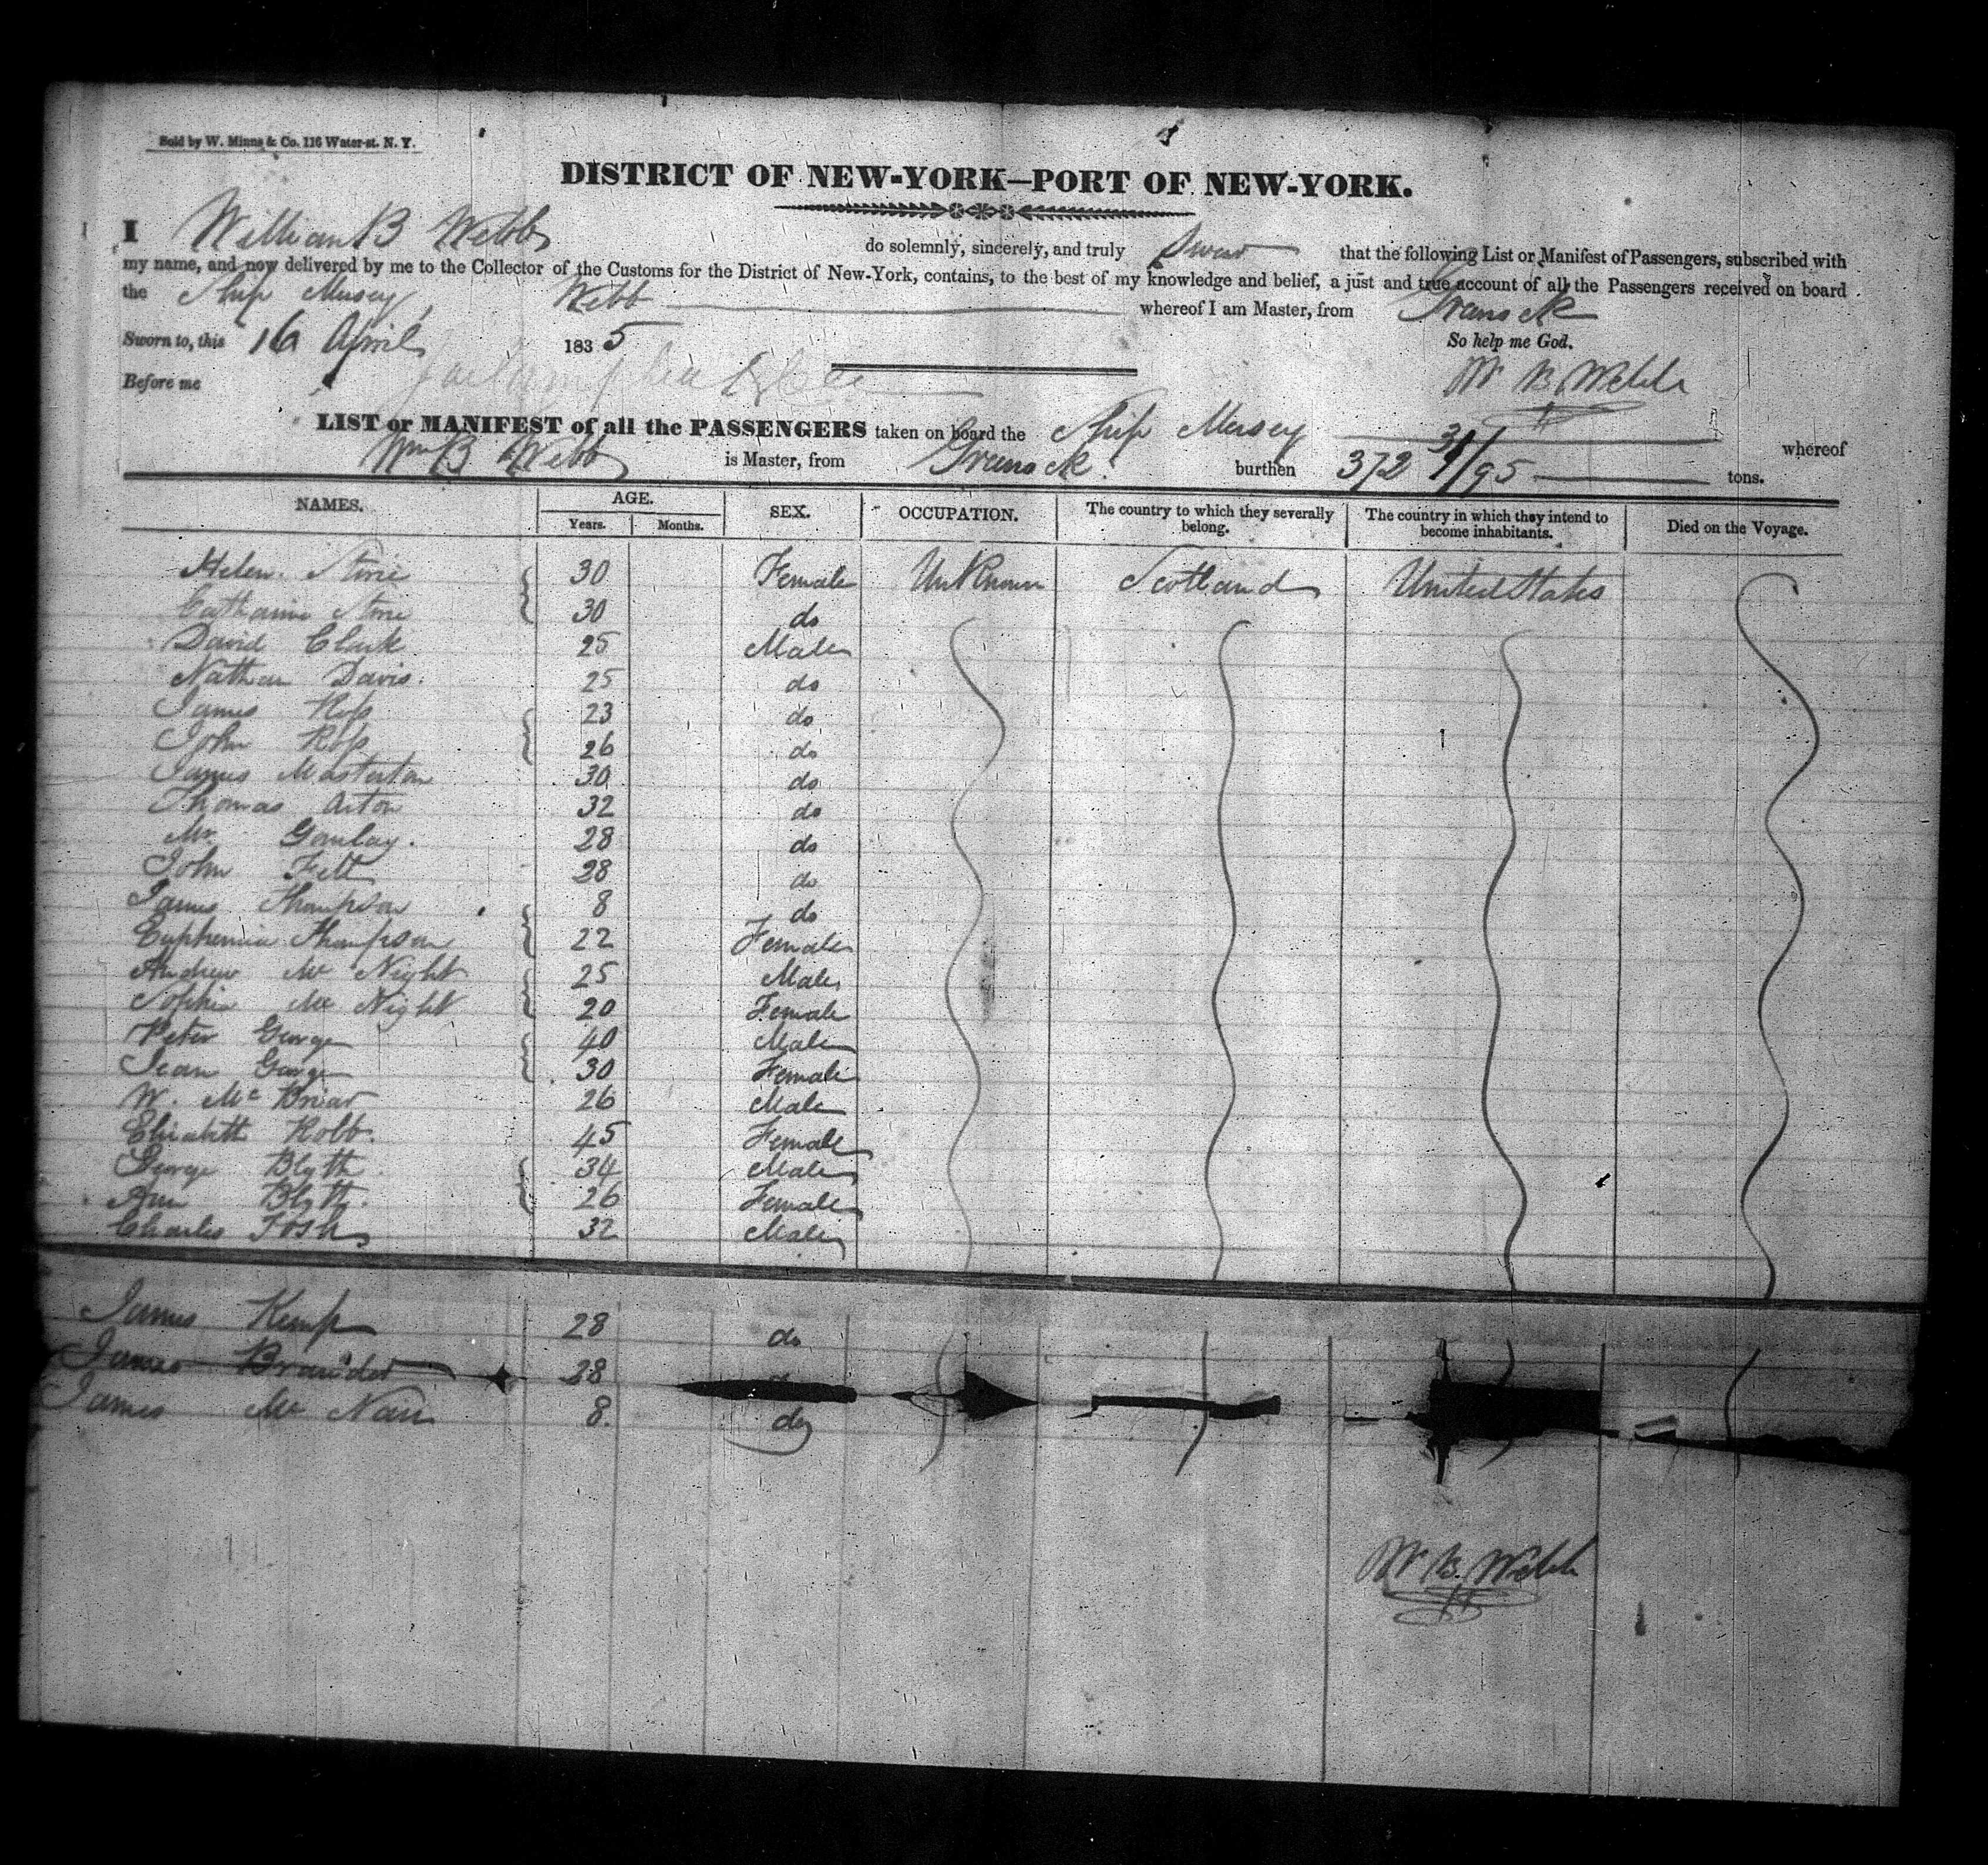 Sold by W. Minns & Co. 116 Water-st. N. Y.
DISTRICT OF NEW-YORK—PORT OF NEW-YORK.
I William B Webb do solemnly, sincerely, and truly Swear that the following List or Manifest of Passengers, subscribed with
my name, and now delivered by me to the Collector of the Customs for the District of New-York, contains, to the best of my knowledge and belief, a just and true account of all the Passengers received on board
the Ship Mersey, Webb whereof I am Master, from Greenock
Sworn to, this 16 April 1835 So help me God.
Before me W B Webb
LIST or MANIFEST of all the PASSENGERS taken on board the Ship Mersey whereof
Wm B Webb is Master, from Greenock burthen 372 /95 tons.
NAMES. AGE. SEX. OCCUPATION. The country to which they severally belong. The country in which they intend to become inhabitants. Died on the Voyage.
Years. Months.
Helen Stirie 30 Female UnKnown Scotland United States
Catharine Stirie 30 do
David Clark 25 Male
Nathan Davis. 25 do
James Ross 23 do
John Ross 26 do
James Masterton 30 do
Thomas Aiton 32 do
Mr. Gourlay. 28 do
John Felt 28 do
James Thompson 8 do
Euphemia Thompson 22 Female
Andrew Mc Night 25 Male
Sophia Mc Night 20 Female
Peter George 40 Male
Jean George 30 Female
W. Mc Briar 26 Male
Elizabeth Robb. 45 Female
George Blyth 34 Male
Ann Blyth. 26 Female
Charles Tosh 32 Male
James Kemp 28 do
James Brander 28
James Mc Nair 8. do
W B. Webb